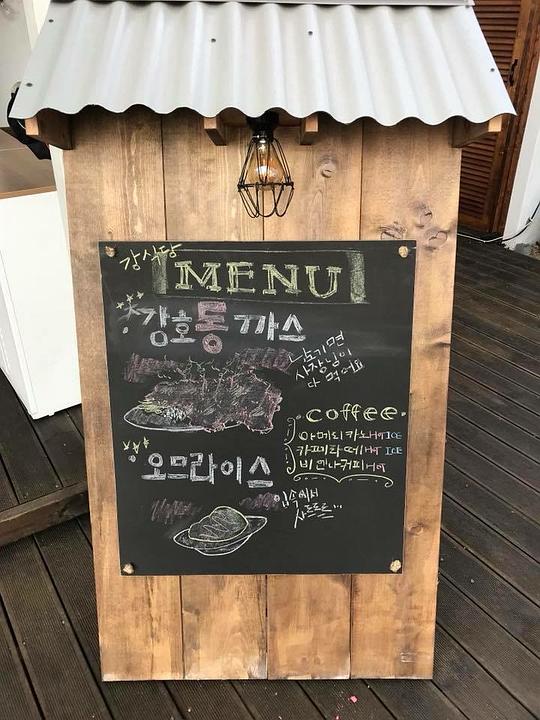 강식당
MENU
강호동까스
남기면
사장님이
다 먹어요
coffee
아메리카노 HOT ICE
카페라떼 HOT ICE
비엔나커피 HOT
오므라이스
입속에서
사르르르...